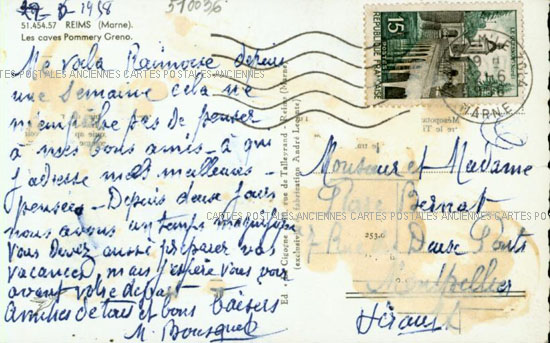 1958
510036
51.454.57 REIMS (Marne).
Les caves Pommery Greno.
Me voila Rémoise depuis
une semaine cela ne
m'empêche pas de penser
à mes bons amis - à qui
j'adresse mes meilleures
pensées - Depuis deux jours
nous avons un temps magnifique
Vous devez aussi préparer vos
vacances, mais j'espère vous voir
avant votre départ
Amitiés de tout et bons baisers
M. Bousquet
CARTES POSTALES ANCIENNES CARTES POSTALES ANCIENNES CARTES POSTALES ANCIENNES
Ed. "La Cigogne" rue de Talleyrand - Reims (Marne)
(exclusive fabrication André Leconte)
15F
REPUBLIQUE FRANÇAISE
MARNE
Monsieur et Madame
Bernat
7 Rue des Deux Ponts
Montpellier
Hérault
253.6